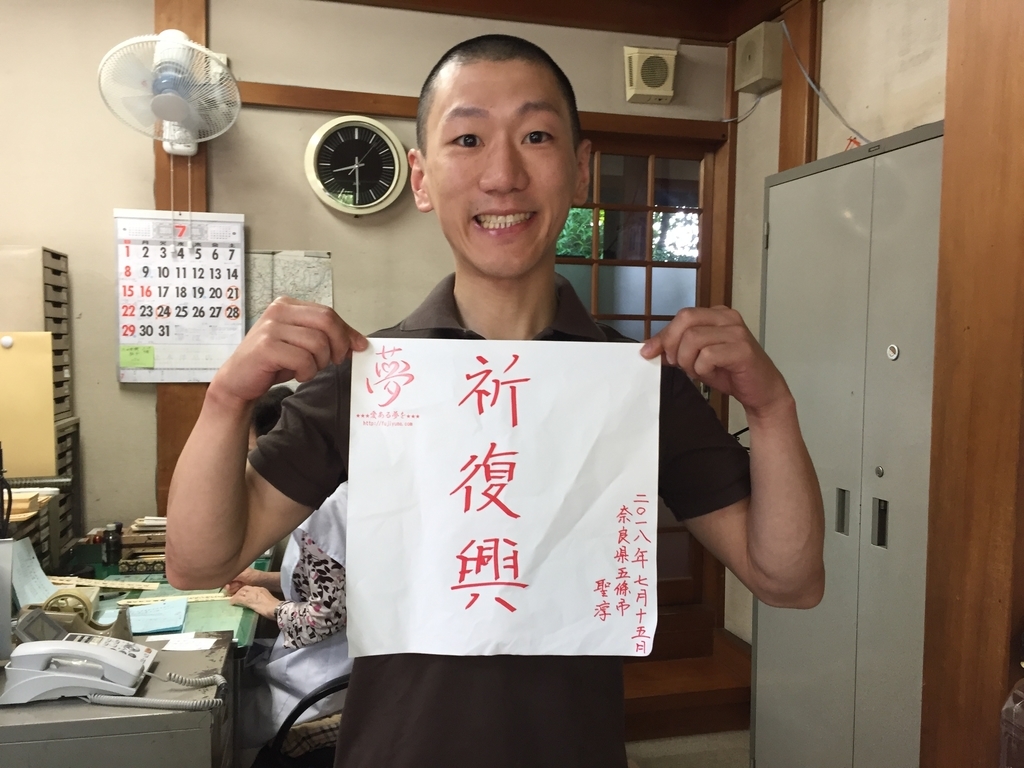 7
1 2 3 4 5 6 7
8 9 10 11 12 13 14
15 16 17 18 19 20 21
22 23 24 25 26 27 28
29 30 31
夢
★★★愛ある夢を★★★
祈復興
二〇一八年七月十五日
奈良県五條市
聖淳